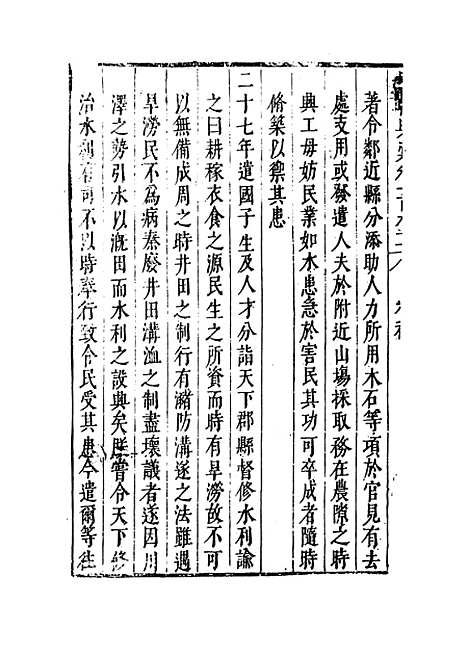 著令鄰近縣分添助人力所用木石等項於官見有去
處支用或發遣人夫於附近山塲採取務在農隙之時
興工毋妨民業如水患急於害民其功可卒成者隨時
脩築以禦其患
二十七年遣國子生及人才分詣天下郡縣督修水利諭
之曰耕稼衣食之源民生之所資而時有旱澇故不可
以無備成周之時井田之制行有瀦防溝遂之法雖遇
旱澇民不為病秦廢井田溝洫之制盡壞議者遂因川
澤之勢引水以漑田而水利之設興矣朕嘗令天下修
治水利有司不以時奉行致令民受其患今遣爾等往